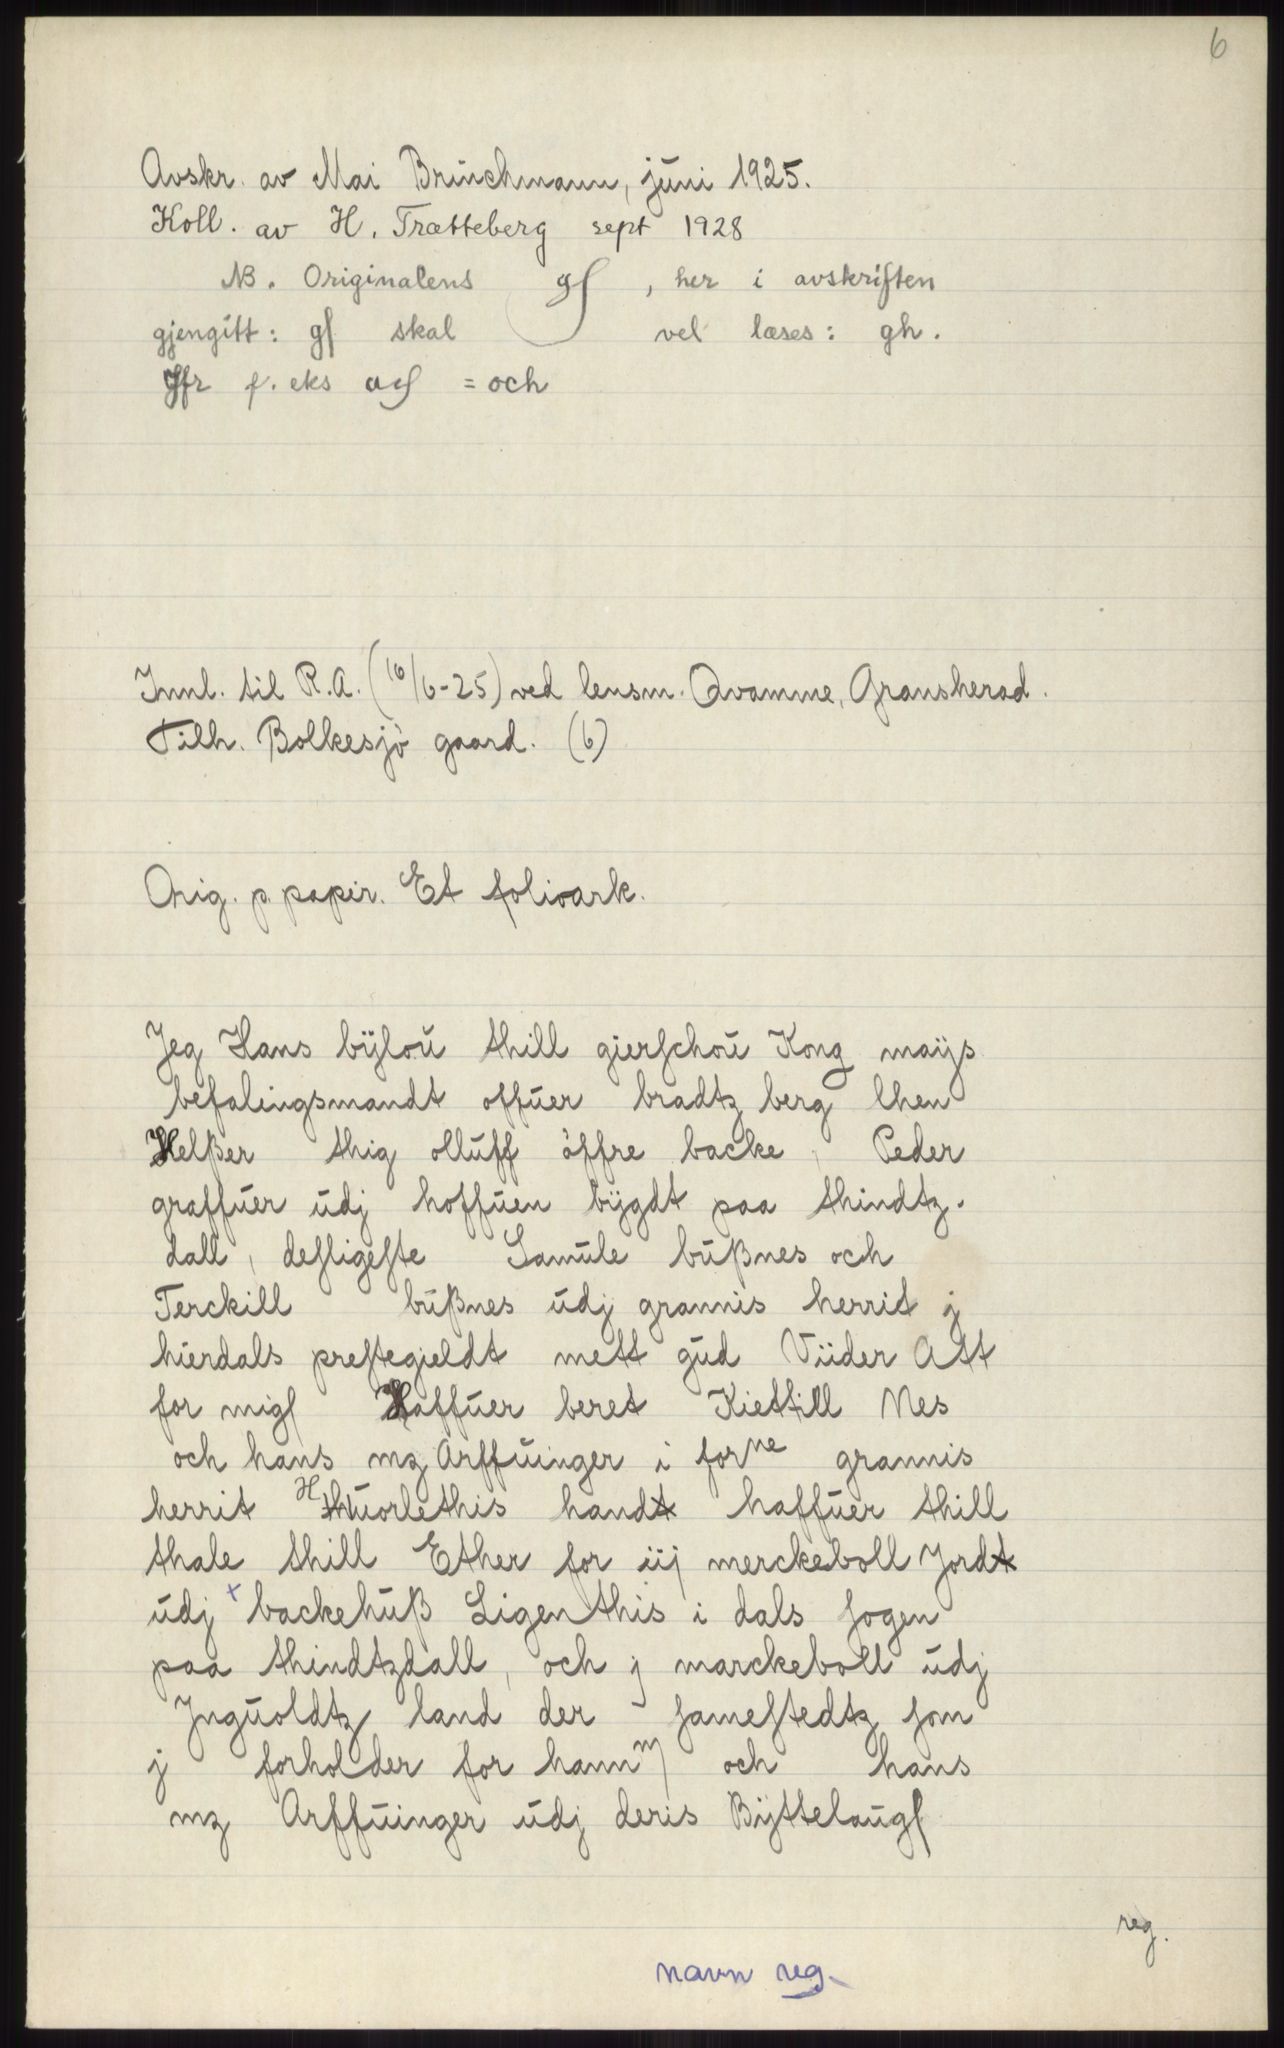 6
Avskr. av Mai Brünchmann, jüni 1925.
Koll. av H. Trætteberg sept 1928
NB. Originalens gſ, her i avskriften
gjengitt: gſ skal vel læses: gh.
Jfr f. eks ogſ = och
Innl. til R.A. (16/6-25) ved lensm. Qvamme, Gransherad.
Tilh. Bolkesjö gaard. (6)
Orig. p. papir. Et folioark.
Jeg Hans bÿloü thill gierſchoü Kong maÿs
befalingsmandt offüer bradtz berg lhen
Helßer thig ollüff öffre backe, Peder
graffüer üdj hoffüen bÿgdt paa thindtz-
dall, desligeſte Samüle büßnes och
Terckill büßnes üdj grannis herrit j
hierdals preſtegieldt mett güd Viider Att
for migſ Haffüer beret Kiettill Nes
och hans mz Arffüinger i forne grannis
herrit Hüorlethis handt haffüer thill
thale thill Ether for iij merckeboll Jordt
üdj + backehüß Ligenthis i dals ſogen
paa thindtzdall, och j marckeboll üdj
Jngüoldtz land der ſameſtedtz ſom
j forholder for hannm och hans
mz Arffüinger üdj deris Bÿttelaügſ
reg.
navn reg.